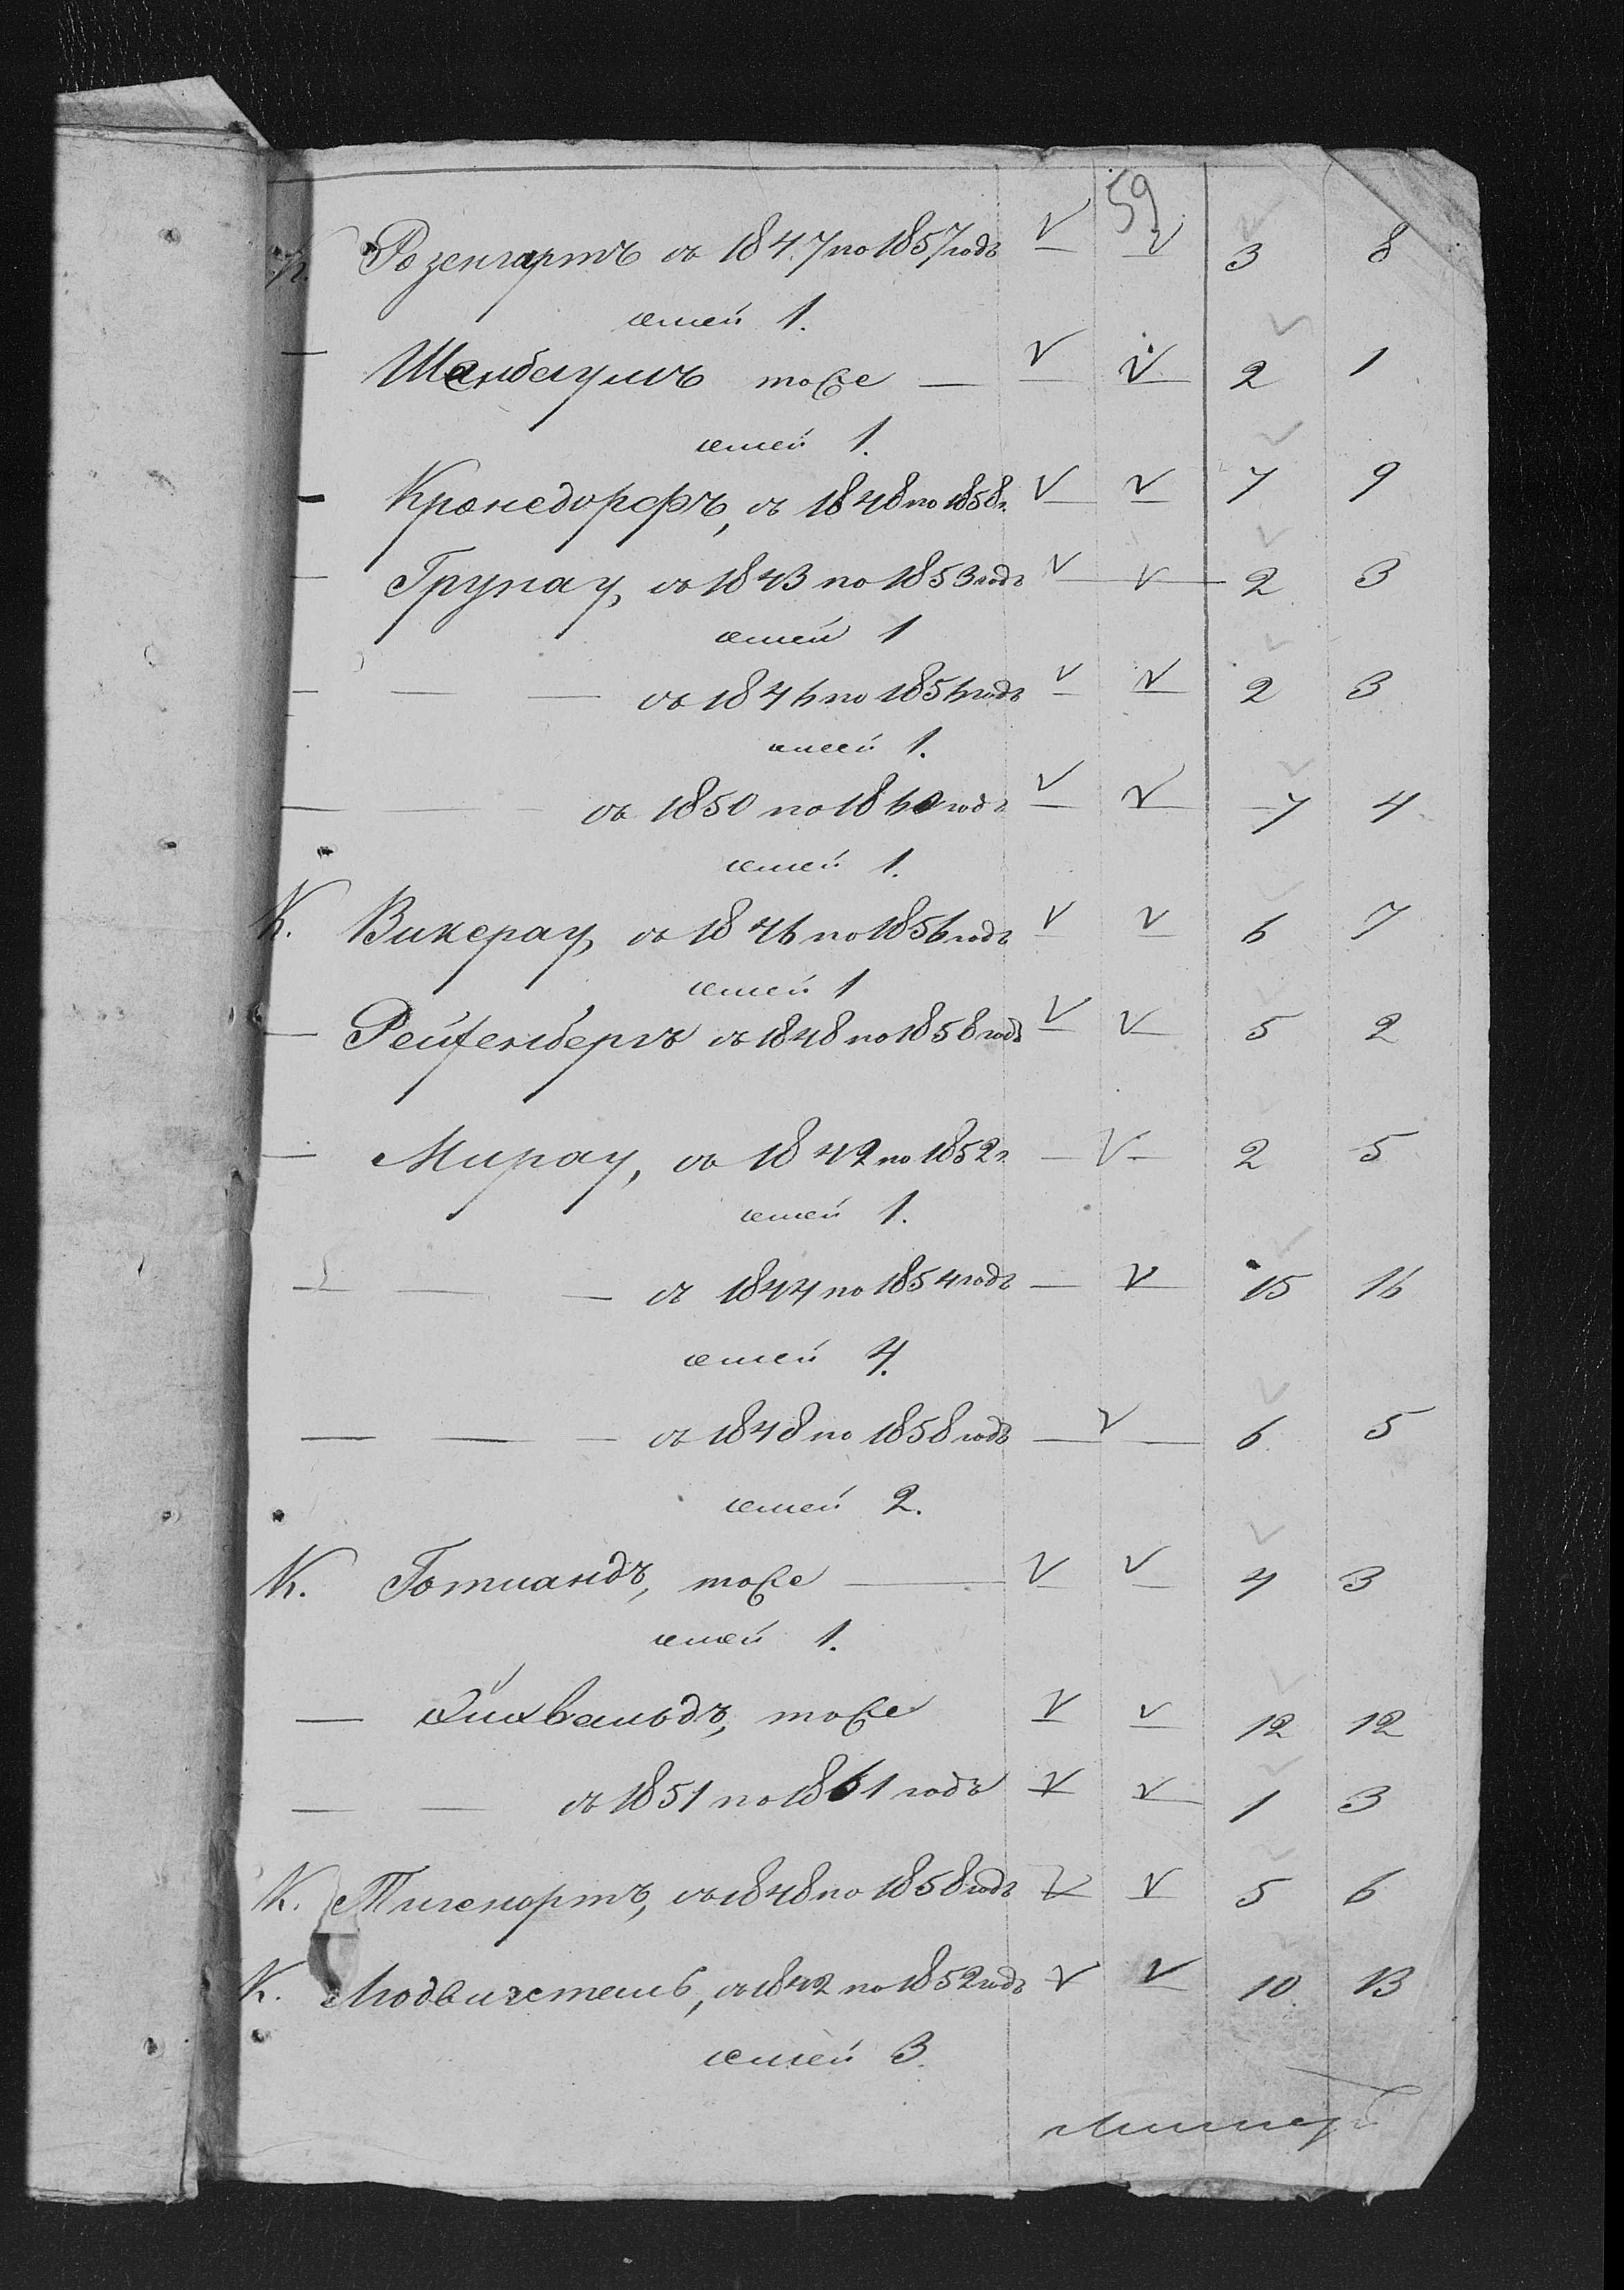 59
К. Розенгартъ съ 1847 по 1857 годъ V V 3 8
семей 1.
— Шенбаумъ тоже — V V 2 1
семей 1.
— Кронсдорфъ, съ 1848 по 1858 г. V V 7 9
— Грунау, съ 1843 по 1853 годъ V V 2 3
семей 1
— — — съ 1846 по 1856 годъ V V 2 3
семей 1.
— — съ 1850 по 1860 годъ V V 7 4
семей 1.
К. Викерау, съ 1846 по 1856 годъ V V 6 7
семей 1
— Рейфенбергъ съ 1848 по 1858 годъ V V 5 2
— Мирау, съ 1842 по 1852 г. — V — 2 5
семей 1.
— — — съ 1844 по 1854 годъ — V 15 16
семей 4.
— — — съ 1848 по 1858 годъ — V — 6 5
семей 2.
К. Готландъ, тоже — V V 4 3
семей 1.
— Эйхвальдъ, тоже V V 12 12
— — съ 1851 по 1861 годъ V V 1 3
К. Тигенортъ, съ 1848 по 1858 годъ V V 5 6
К. Людвигсталь, съ 1842 по 1852 годъ V V 10 13
семей 3.